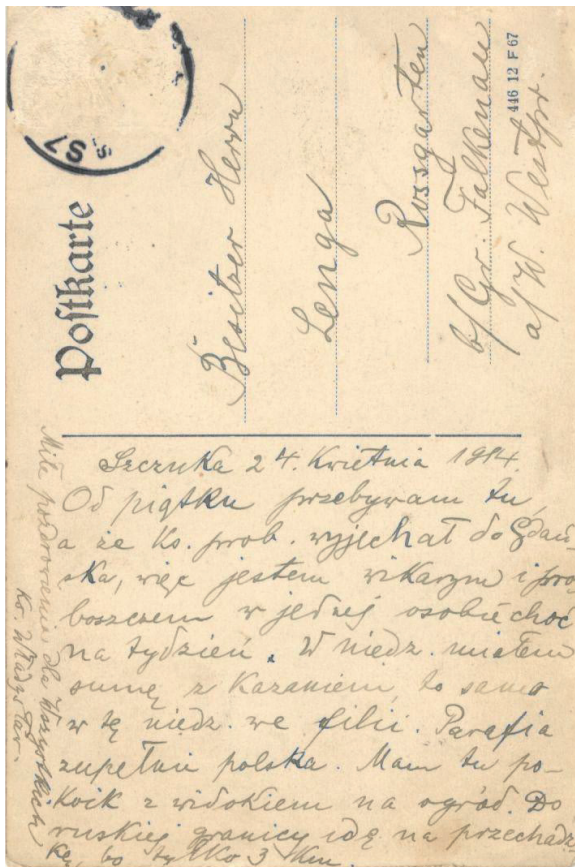 Postkarte
S7
446 12 F 67
Besitzer Herrn
Lenga
Rossgarten
b/Gr. Falkenau
a/W. Westpr.
Szczuka 24. Kwietnia 1914.
Od piątku przebywam tu,
a że ks. prob. wyjechał do Gdań-
ska, więc jestem wikarym i pro
boszczem w jednej osobie choć
na tydzień. W niedz. miałem
sumę z kazaniem, to samo
w tę niedz. we filii. Parafia
zupełnie polska. Mam tu po-
koik z widokiem na ogród. Do
ruskiej granicy idę na przechadz
kę, bo tylko 3 km.
Miłe pozdrowienia dla Wszystkich
Ks. Władysław.